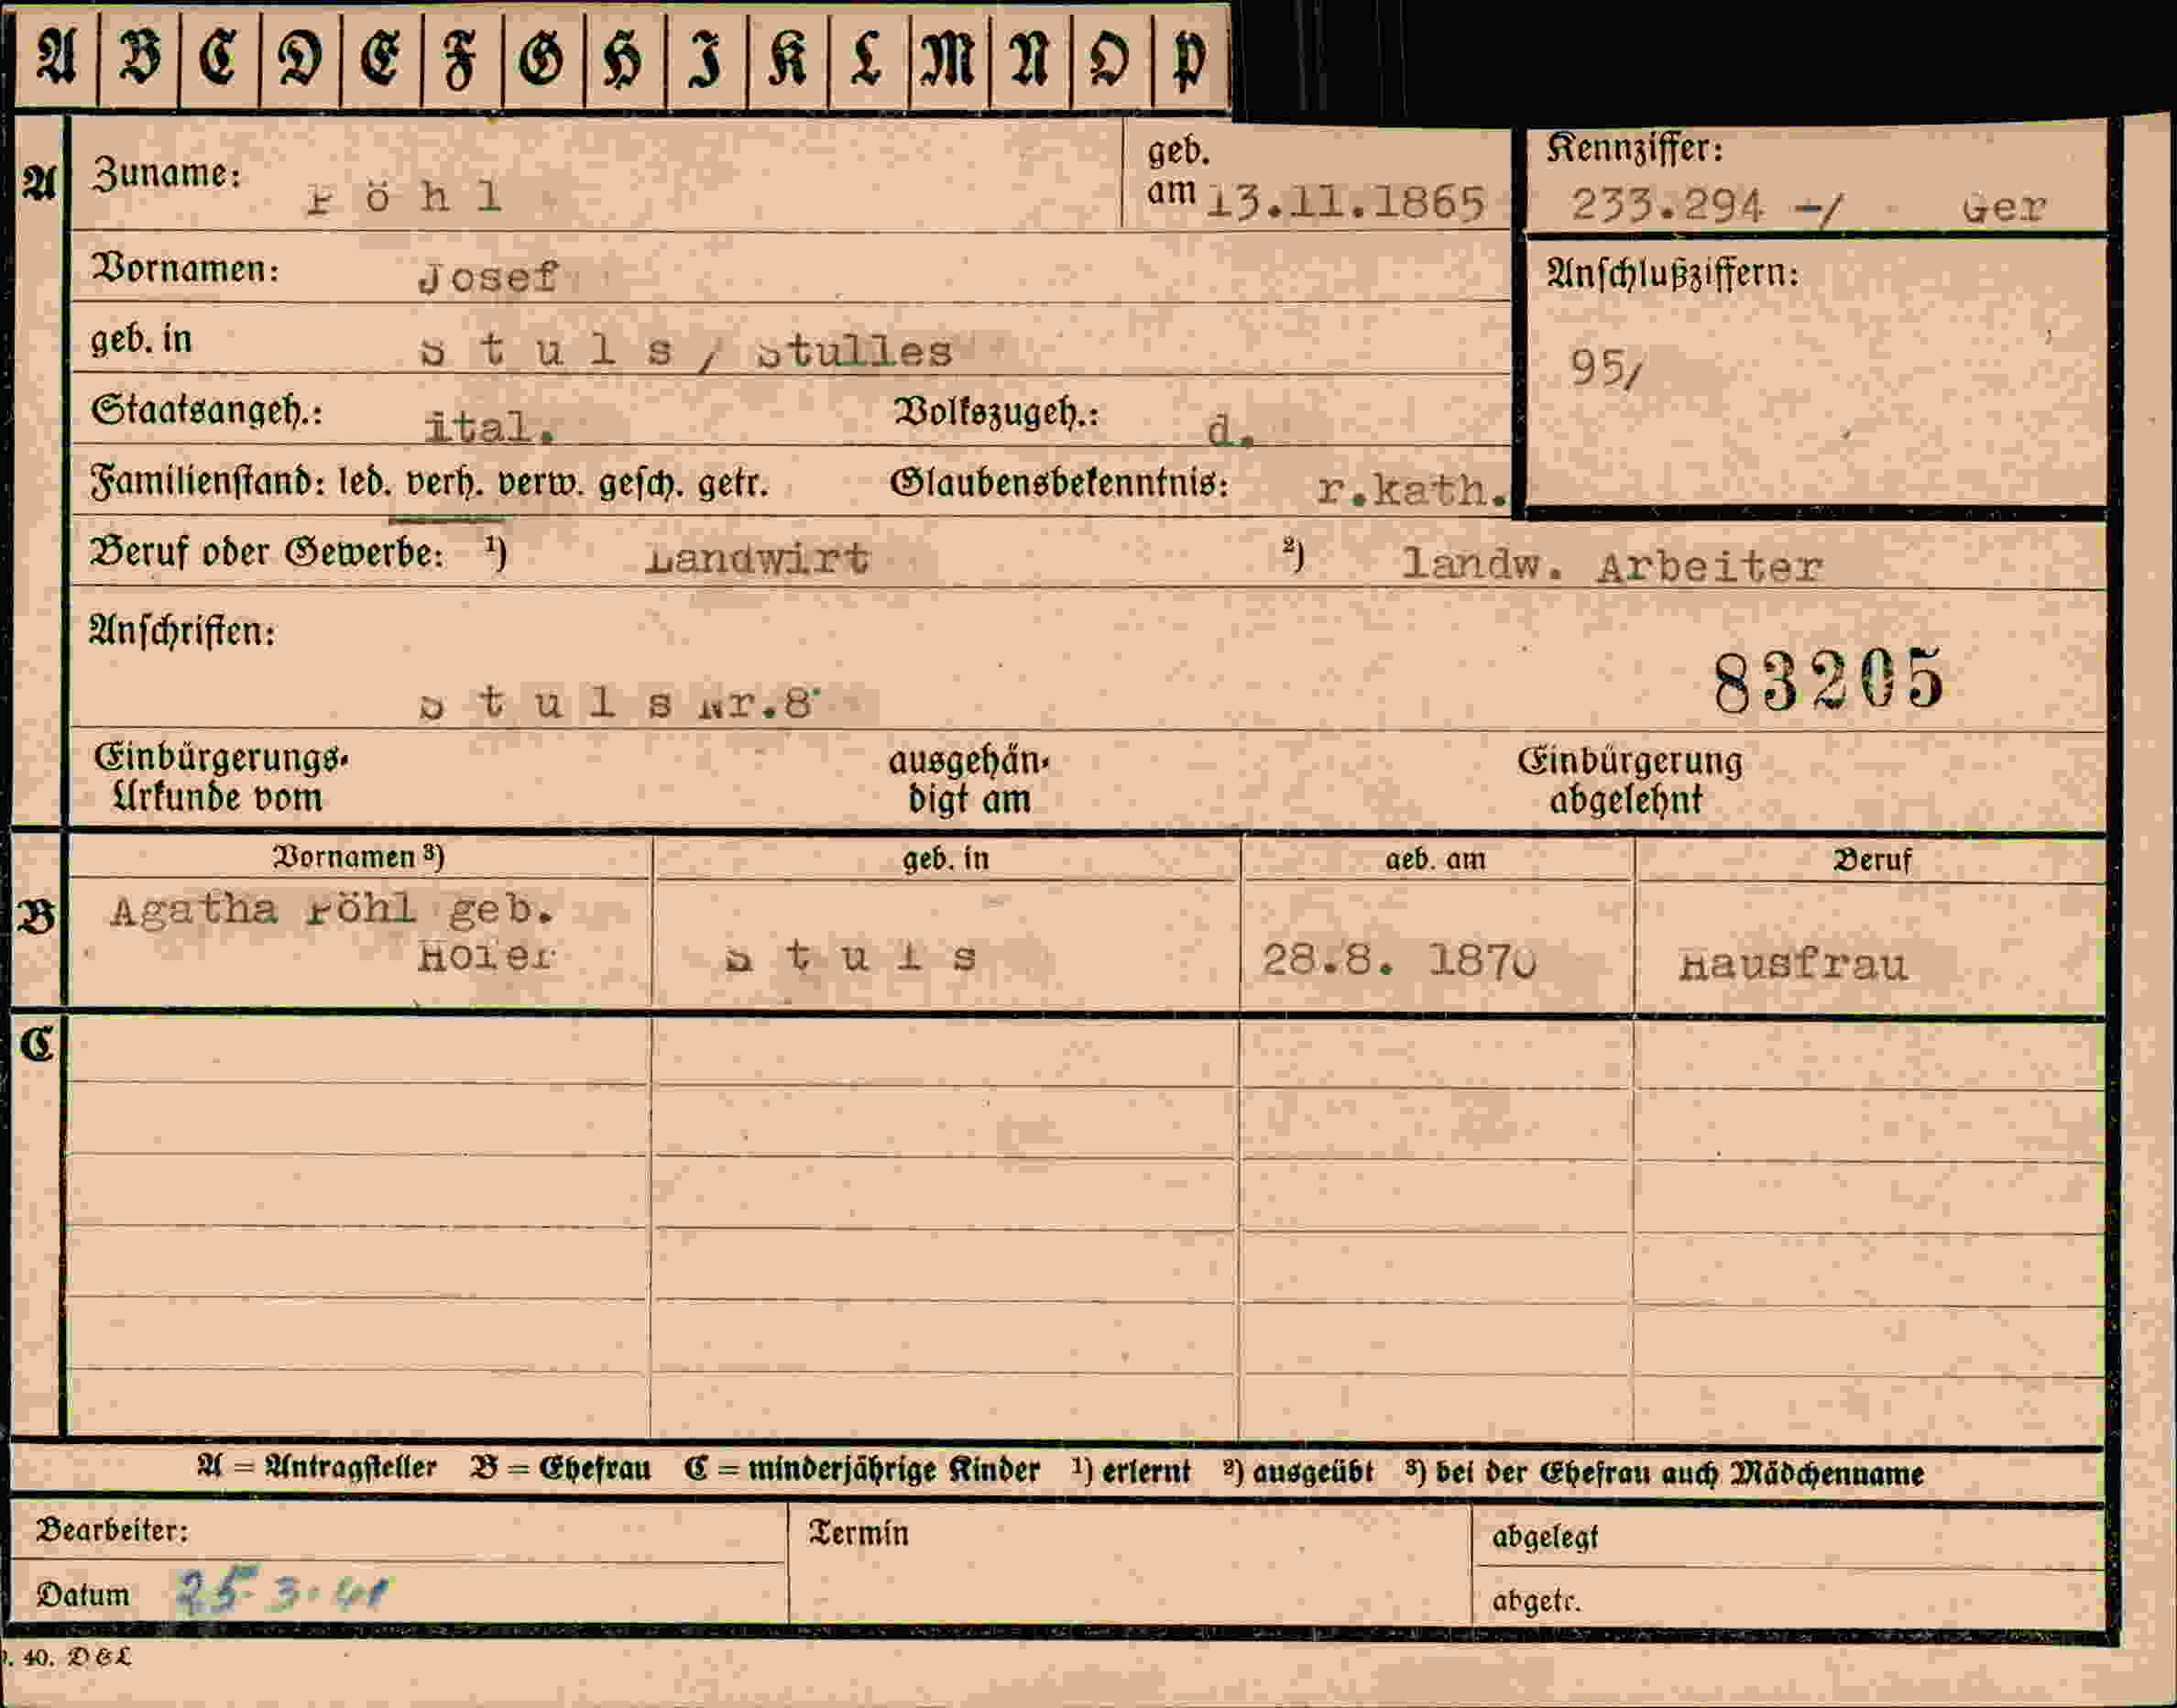 A B C D E F G H I K L M N O P
A Zuname: Pöhl geb. am 13.11.1865 Kennziffer: 233.294 -/ Ger
Vornamen: Josef Anschlußziffern:
geb. in S t u l s / Stulles 95/
Staatsangeh.: ital. Volkszugeh.: d.
Familienstand: led. verh. verw. gesch. getr. Glaubensbekenntnis: r.kath.
Beruf oder Gewerbe: ¹) Landwirt ²) landw. Arbeiter
Anschriften:
S t u l s Nr.8 83205
Einbürgerungs- ausgehän- Einbürgerung
Urkunde vom digt am abgelehnt
Vornamen ³) geb. in geb. am Beruf
B Agatha Pöhl geb.
Hofer S t u l s 28.8. 1870 Hausfrau
C
A = Antragsteller B = Ehefrau C = minderjährige Kinder ¹) erlernt ²) ausgeübt ³) bei der Ehefrau auch Mädchenname
Bearbeiter: Termin abgelegt
Datum 25 3. 41 abgetr.
40. D & L